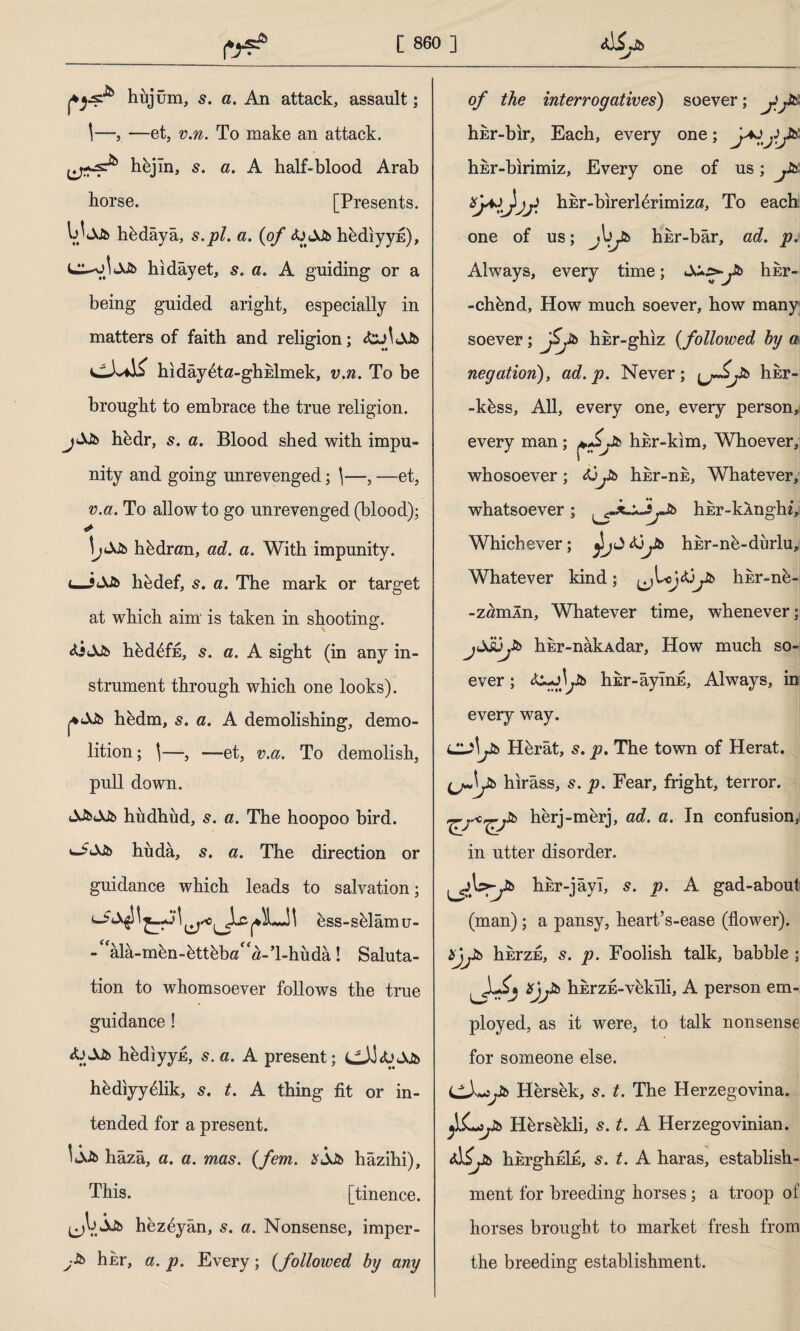 هجوم [ 860 ] هرگله
هجوم hùjūm, s. a. An attack, assault;
ا—, —et, v.n. To make an attack.
هجين hèjīn, s. a. A half-blood Arab
horse. [Presents.
هدايا hèdāyā, s.pl. a. (of هديه hèdìyyᴇ),
هدايت hìdāyet, s. a. A guiding or a
being guided aright, especially in
matters of faith and religion; هدايته
گلمك hìdāyéta-ghᴇlmek, v.n. To be
brought to embrace the true religion.
هدر hèdr, s. a. Blood shed with impu-
nity and going unrevenged; ا—, —et,
v.a. To allow to go unrevenged (blood);
هدراً hèdran, ad. a. With impunity.
هدف hèdef, s. a. The mark or target
at which aim is taken in shooting.
هدفه hèdéfᴇ, s. a. A sight (in any in-
strument through which one looks).
هدم hèdm, s. a. A demolishing, demo-
lition; ا—, —et, v.a. To demolish,
pull down.
هدهد hùdhùd, s. a. The hoopoo bird.
هدى hùdà, s. a. The direction or
guidance which leads to salvation;
السلام على من اتبع الهدى èss-sèlāmu-
-ʽʽàlà-mèn-èttèbaʽʽa-’l-hùdà! Saluta-
tion to whomsoever follows the true
guidance!
هديه hèdìyyᴇ, s. a. A present; هديه‌لك
hèdìyyélik, s. t. A thing fit or in-
tended for a present.
هذا hāzā, a. a. mas. (fem. هذه hāzihi),
This. [tinence.
هذيان hèzéyān, s. a. Nonsense, imper-
هر hᴇr, a. p. Every; (followed by any
of the interrogatives) soever; هربر
hᴇr-bìr, Each, every one; هربريمز
hᴇr-bìrimiz, Every one of us; هر
برلريمزه hᴇr-bìrerlérimiza, To each
one of us; هربار hᴇr-bār, ad. p.
Always, every time; هرچند hᴇr-
-chènd, How much soever, how many
soever; هرگز hᴇr-ghìz (followed by a
negation), ad. p. Never; هركس hᴇr-
-kèss, All, every one, every person,
every man; هركيم hᴇr-kìm, Whoever,
whosoever; هرنه hᴇr-nᴇ, Whatever,
whatsoever; هرقنغى hᴇr-kànghi,
Whichever; هرنه درلو hᴇr-nè-dùrlu,
Whatever kind; هرنه‌زمان hᴇr-nè-
-zamàn, Whatever time, whenever;
هرنقدر hᴇr-nàkᴀdar, How much so-
ever; هرآينه hᴇr-āyīnᴇ, Always, in
every way.
هرات Hèràt, s. p. The town of Herat.
هراس hìrāss, s. p. Fear, fright, terror.
هرج‌مرج hèrj-mèrj, ad. a. In confusion,
in utter disorder.
هرجايى hᴇr-jāyī, s. p. A gad-about
(man); a pansy, heart’s-ease (flower).
هرزه hᴇrzᴇ, s. p. Foolish talk, babble;
هرزه وكيلى hᴇrzᴇ-vèkīli, A person em-
ployed, as it were, to talk nonsense
for someone else.
هرسك Hèrsèk, s. t. The Herzegovina.
هرسكلو Hèrsèkli, s. t. A Herzegovinian.
هرگله hᴇrghᴇlᴇ, s. t. A haras, establish-
ment for breeding horses; a troop of
horses brought to market fresh from
the breeding establishment.